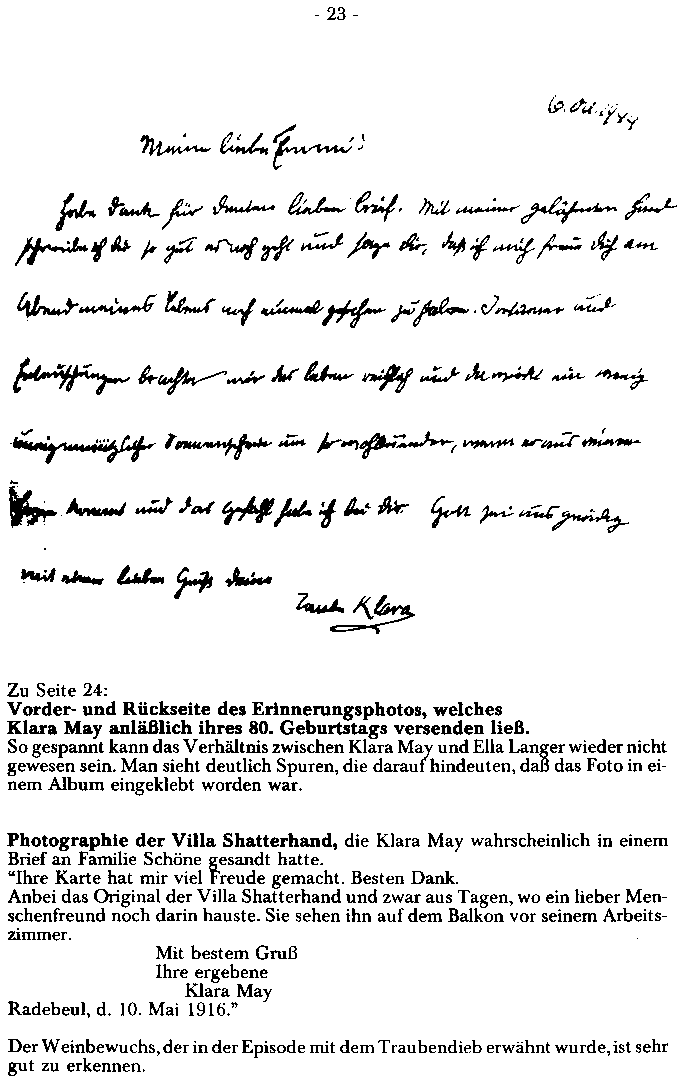 - 23 -
6. Okt. 1944
Meine liebe Emmi!
Habe Dank für Deinen lieben Brief. Mit meiner gelähmten Hand
schreibe ich Dir so gut es noch geht und sage Dir, daß ich mich freue Dich am
Abend meines Lebens noch einmal gesehen zu haben. und
brachte mir das Leben reichlich und da wirkt ein wenig
Sonnenschein um so wohltuender, wenn er aus einem
Herzen kommt und das Gefühl habe ich bei Dir. Gott sei uns gnädig
mit einem lieben Gruß Deine
Tante Klara
Zu Seite 24:
Vorder- und Rückseite des Erinnerungsphotos, welches
Klara May anläßlich ihres 80. Geburtstags versenden ließ.
So gespannt kann das Verhältnis zwischen Klara May und Ella Langer wieder nicht
gewesen sein. Man sieht deutlich Spuren, die darauf hindeuten, daß das Foto in ei-
nem Album eingeklebt worden war.
Photographie der Villa Shatterhand, die Klara May wahrscheinlich in einem
Brief an Familie Schöne gesandt hatte.
“Ihre Karte hat mir viel Freude gemacht. Besten Dank.
Anbei das Original der Villa Shatterhand und zwar aus Tagen, wo ein lieber Men-
schenfreund noch darin hauste. Sie sehen ihn auf dem Balkon vor seinem Arbeits-
zimmer.
Mit bestem Gruß
Ihre ergebene
Klara May
Radebeul, d. 10. Mai 1916.”
Der Weinbewuchs, der in der Episode mit dem Traubendieb erwähnt wurde, ist sehr
gut zu erkennen.